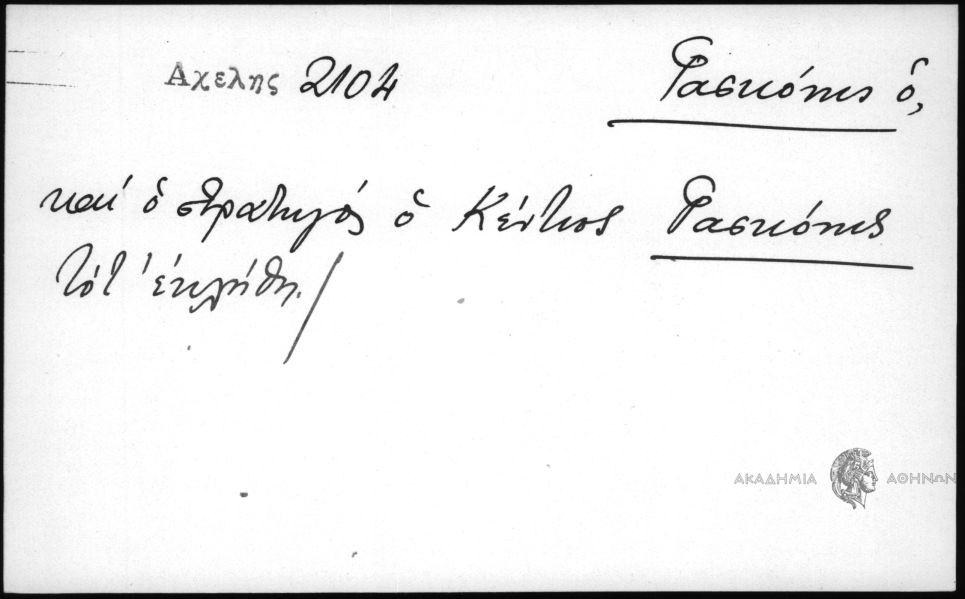 Αχελης 2104
Γασκόνης ὁ,
καί ὁ στρατηγός ὁ Κέντιος Γασκόνης
τότ' ἐκλήθη.
ΑΚΑΔΗΜΙΑ ΑΘΗΝΩΝ